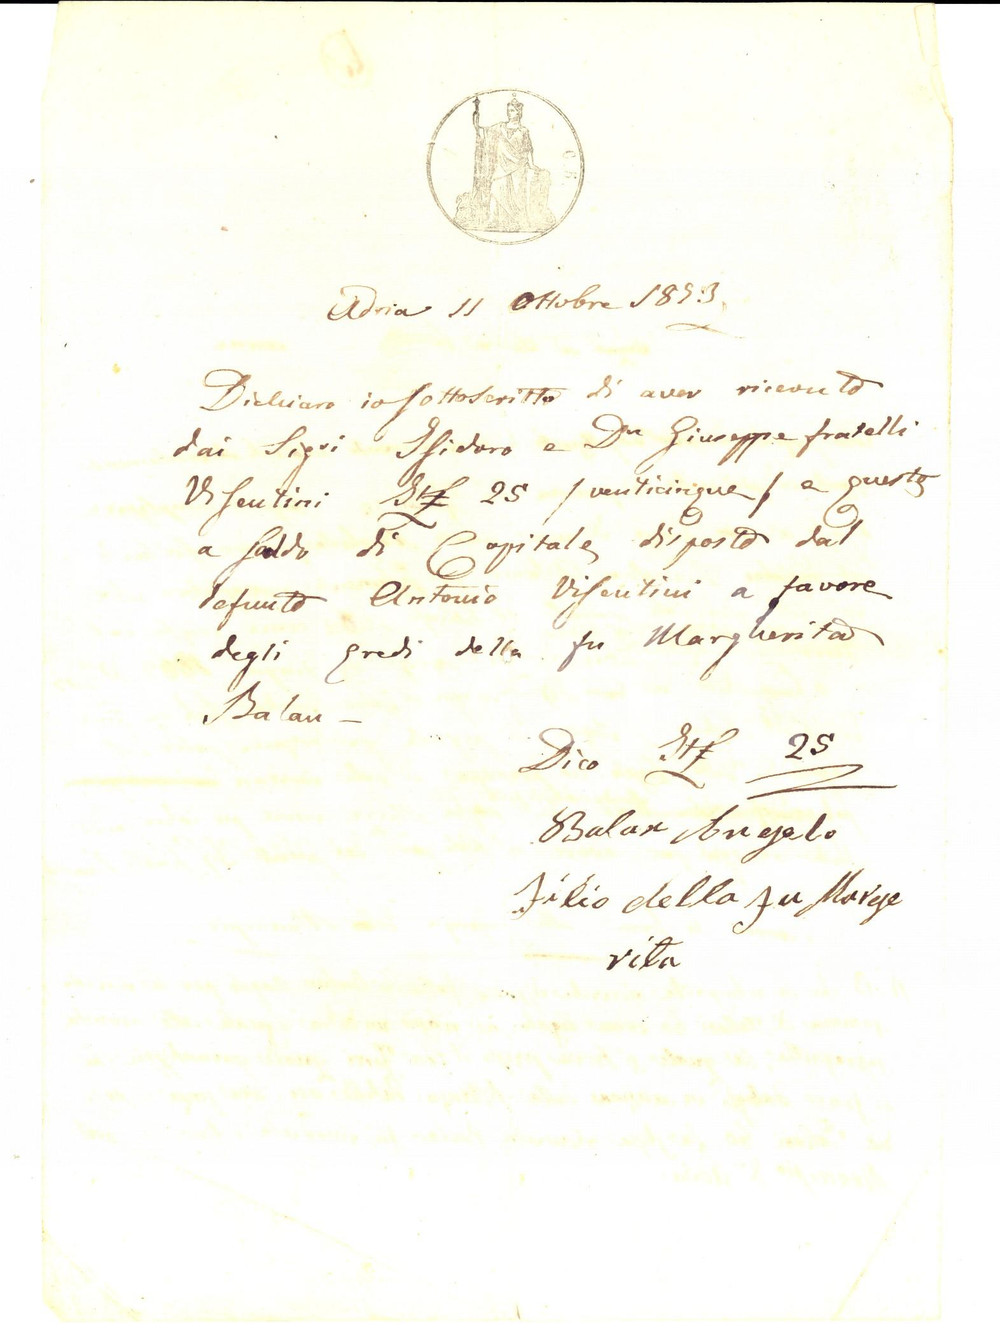 C. 5.
Adria 11 Ottobre 1853
Dichiaro io sottoscritto di aver ricevuto
dai Sigri Isidoro e Dn Giuseppe fratelli
Visentini 25 /venticinque/ e questo
a saldo di Capitale disposto dal
defunto Antonio Visentini a favore
degli Eredi della fu Margherita
Balan –
Dico 25
Balan Angelo
Filio della fu Marge
rita